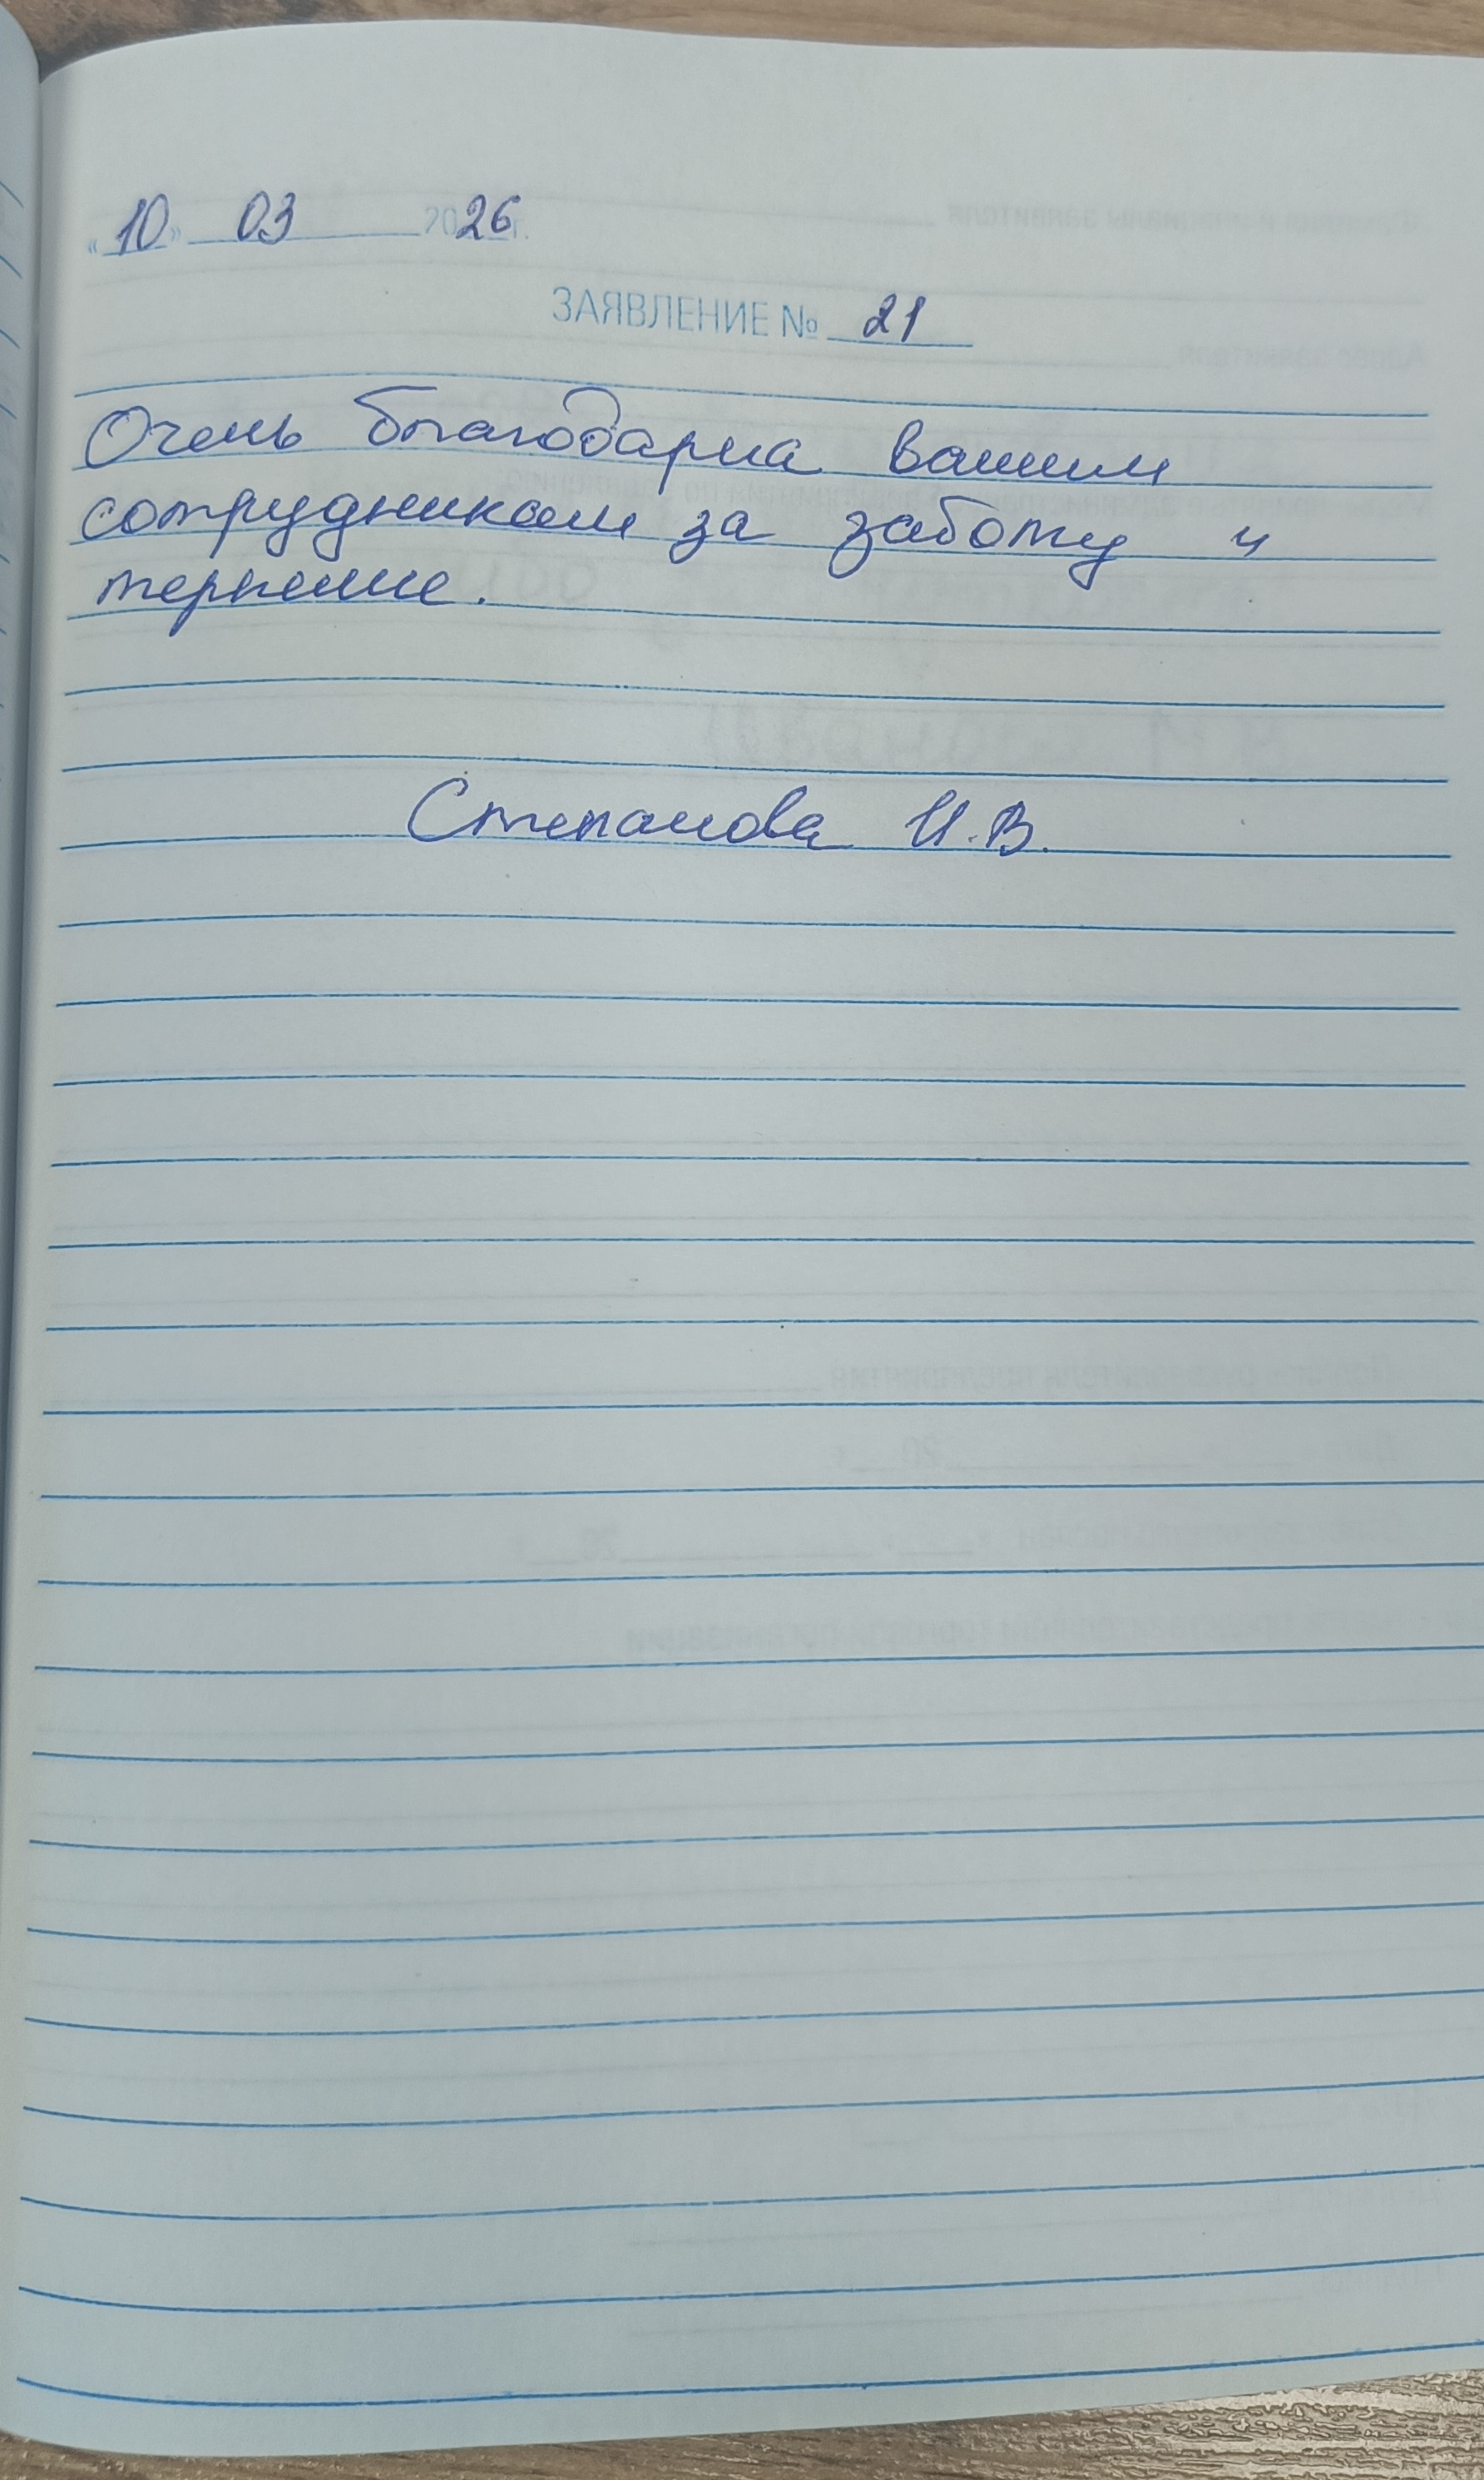 «10» 03 2026 г.
ЗАЯВЛЕНИЕ № 21
Очень благодарна вашим
сотрудникам за заботу и
терпение.
Степанова И.В.